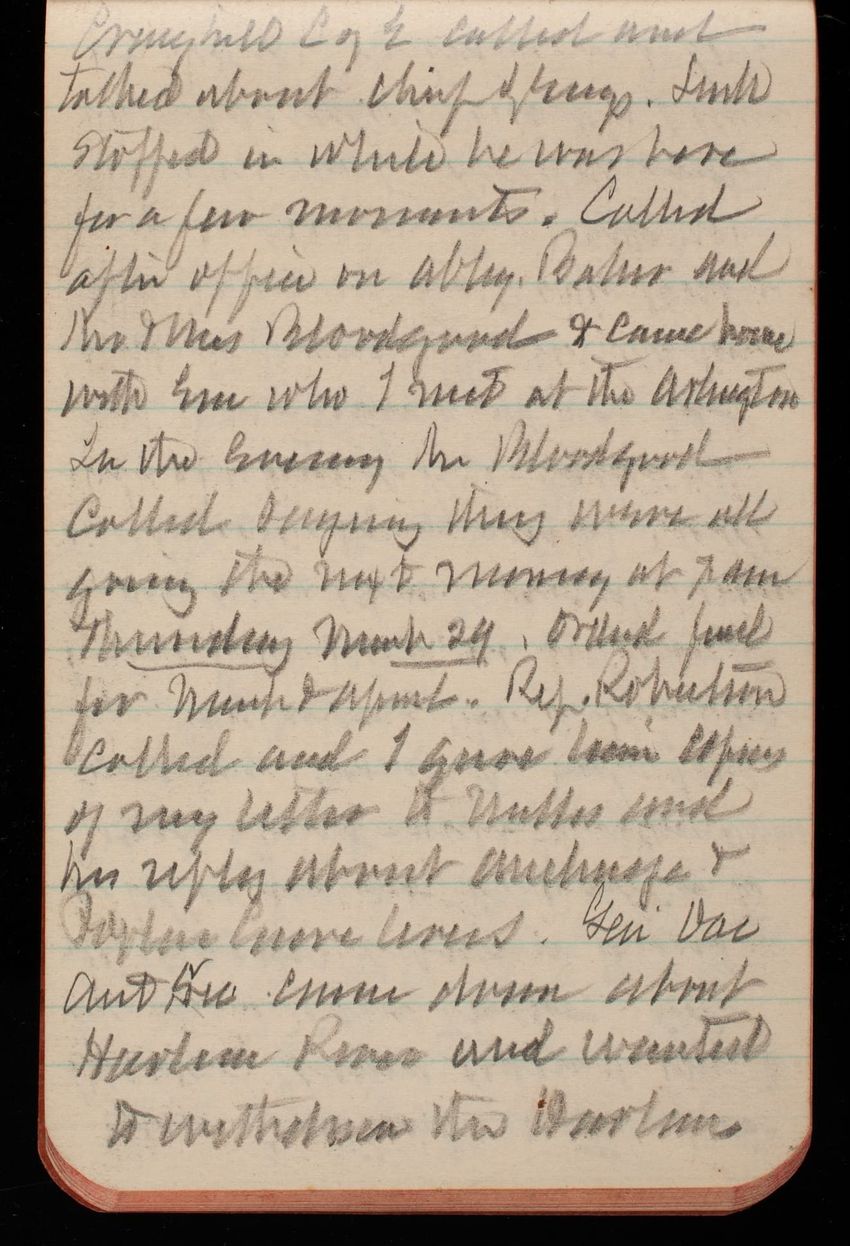 Craighill C of E called and
talked about chief of Engs.
stopped in while he was here
for a few moments. Called
after office on and
Mr & Mrs Bloodgood & came home
with Em who I met at the Arlington
In the Evening Mr Bloodgood
Called saying they were all
going the next morning at 7 am
Thursday March 29. Ordered fuel
for March & April. Rep. Robertson
Called and I gave him copies
of my letter to and
his reply about anchorage &
levees. Gen
and came down about
Harlem River and wanted
to withdraw the Harlem